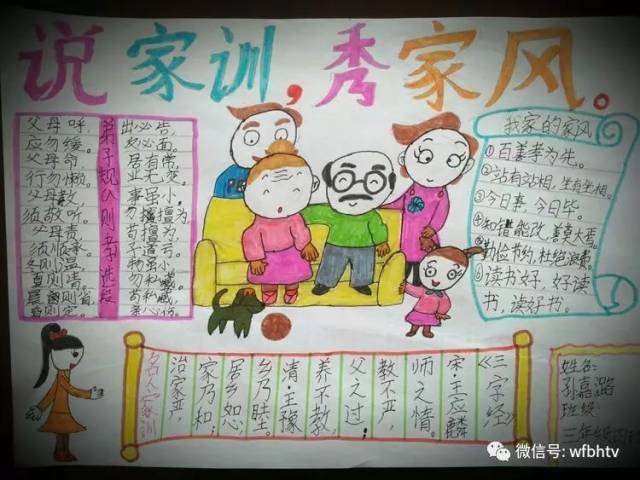 说家训,秀家风。
弟子规入则孝选段
父母呼,
应勿缓。
父母命,
行勿懒。
父母教,
须敬听。
父母责,
须顺承。
冬则温,
出必告,
居有常,
业无变。
事虽小,
勿擅为。
苟擅为,
子道亏。
物虽小,
勿私藏。
苟私藏,
亲心伤。
我家的家风
①百善孝为先。
②站有站相,坐有坐相。
③今日事,今日毕。
④知错能改,善莫大焉。
勤俭节约,杜绝浪费。
⑥读书好,好读
书,读好书。
名人家训
治家严,
家乃和;
居乡恕,
乡乃睦。
清·王豫
养不教,
父之过;
教不严,
师之情。
宋·王应麟
《三字经》
姓名:
孙嘉潞
班级:
三年级
微信号: wfbhtv